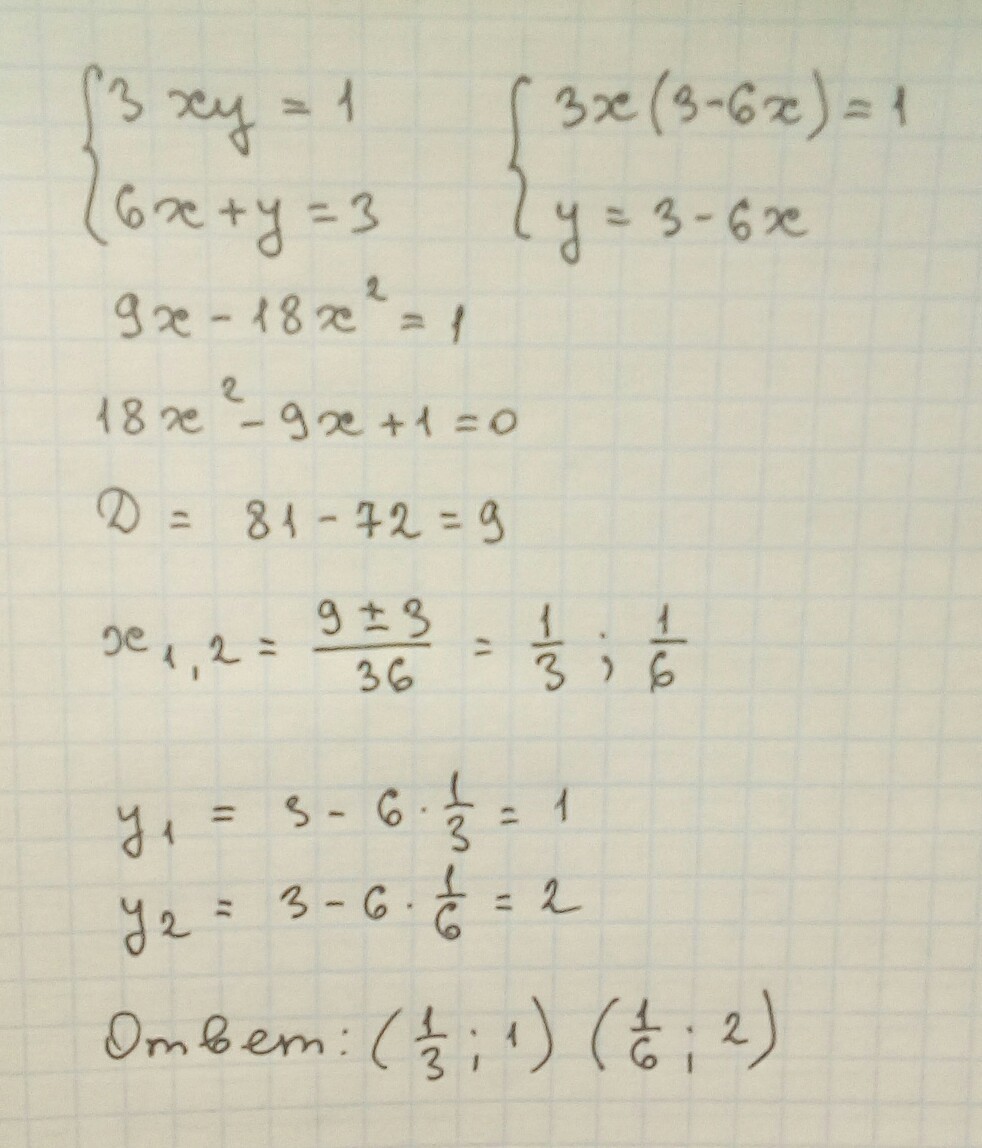 { 3xy = 1 { 3x(3-6x) = 1
6x + y = 3 y = 3 - 6x
9x - 18x² = 1
18x² - 9x + 1 = 0
D = 81 - 72 = 9
x₁,₂ = (9 ± 3)/36 = 1/3 ; 1/6
y₁ = 3 - 6 · 1/3 = 1
y₂ = 3 - 6 · 1/6 = 2
Ответ: (1/3 ; 1) (1/6 ; 2)